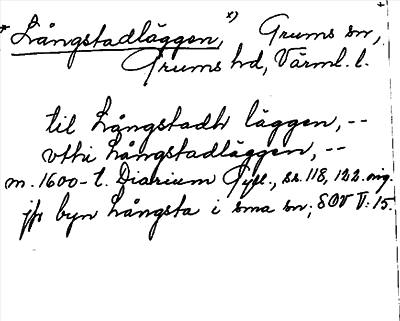 * Långstadläggen, x) Grums sn,
Grums hd, Värml. l.
til Långstadh läggen, --
vthi Långstadläggen, --
m. 1600-t. Diarium Gyll., ss. 118, 122. orig.
jfr byn Långsta i sma sn; SOV V: 15.